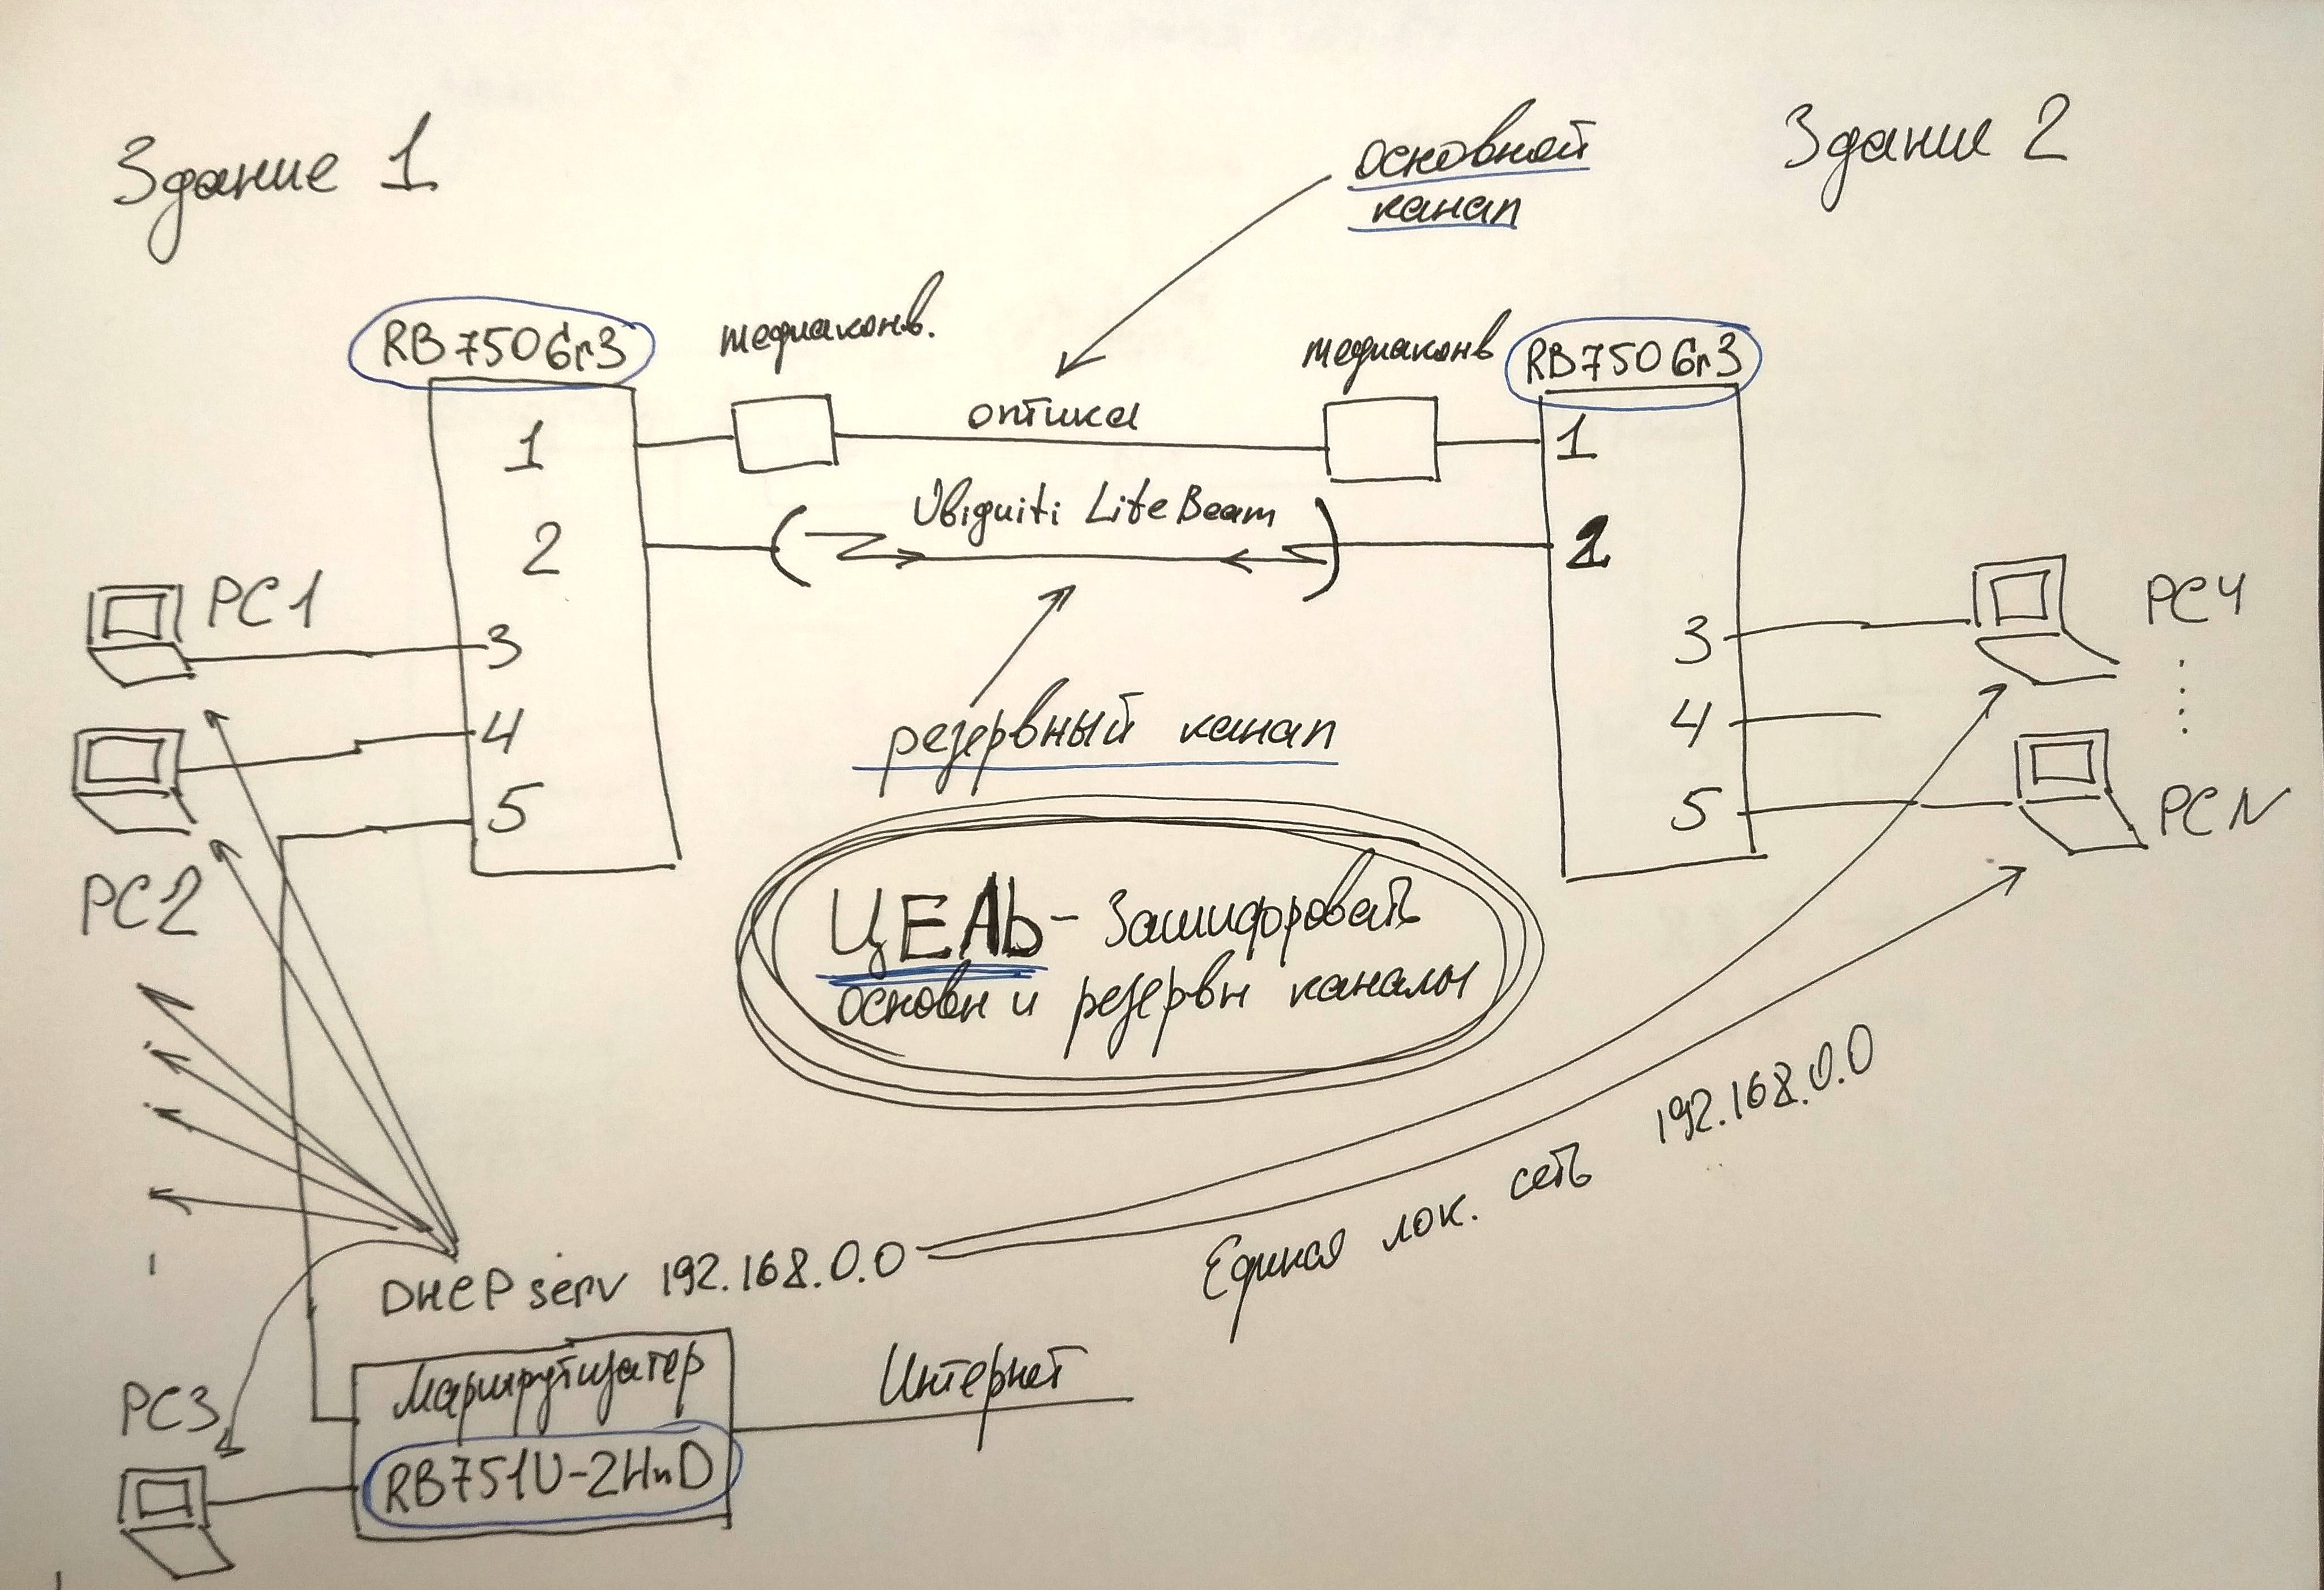 Здание 1
основной
канал
Здание 2
RB750Gr3
медиаконв.
медиаконв
RB750Gr3
оптика
1
1
2
Ubiquiti LiteBeam
2
PC1
3
3
PC4
4
резервный канал
4
PC2
5
5
PCN
ЦЕЛЬ - Зашифровать
основн и резервн каналы
DHCP serv 192.168.0.0
Единая лок. сеть 192.168.0.0
PC3
Маршрутизатер
RB751U-2HnD
Интернет